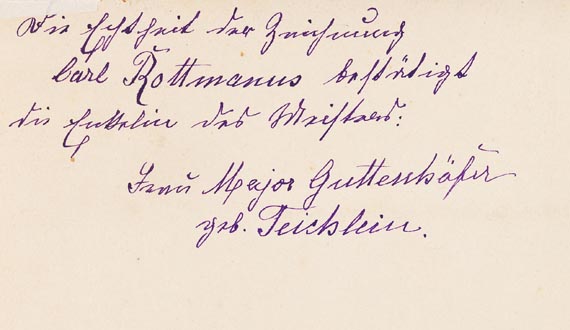 Die Echtheit der Zeichnung
Carl Rottmanns bestätigt
die Enkelin des Meisters:
Frau Major Guttenhöfer
geb. Teichlein.